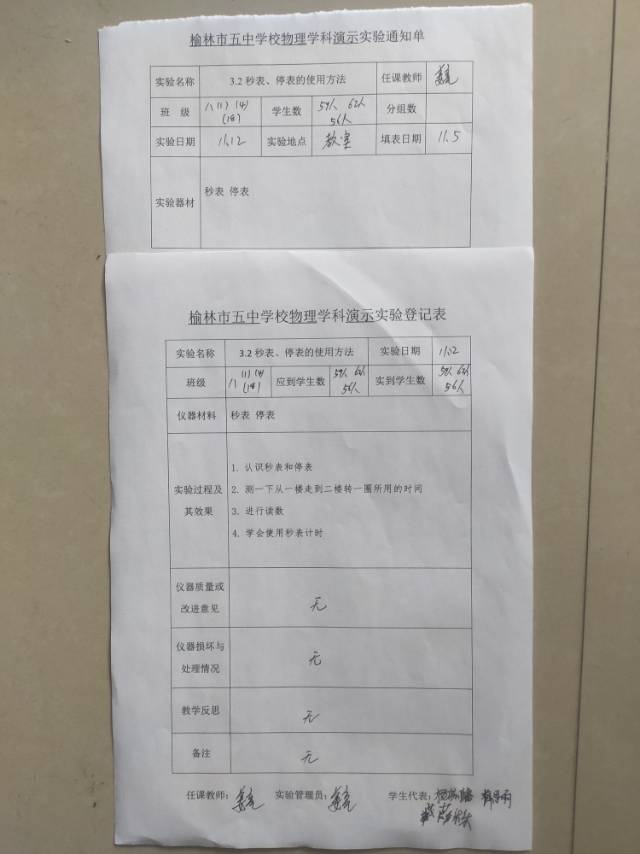 榆林市五中学校物理学科演示实验通知单
实验名称 3.2 秒表、停表的使用方法 任课教师
班 级 八(1) (4) 学生数 59人 62人 分组数
(18) 56人
实验日期 11.12 实验地点 教室 填表日期 11.5
实验器材 秒表 停表
榆林市五中学校物理学科演示实验登记表
实验名称 3.2 秒表、停表的使用方法 实验日期 11.12
班级 八 (1) (4) 应到学生数 59人 62人 实到学生数 59人 62人
(18) 56人 56人
仪器材料 秒表 停表
实验过程及其效果
1. 认识秒表和停表
2. 测一下从一楼走到二楼转一圈所用的时间
3. 进行读数
4. 学会使用秒表计时
仪器质量或改进意见 无
仪器损坏与处理情况 无
教学反思 无
备注 无
任课教师: 实验管理员: 学生代表: